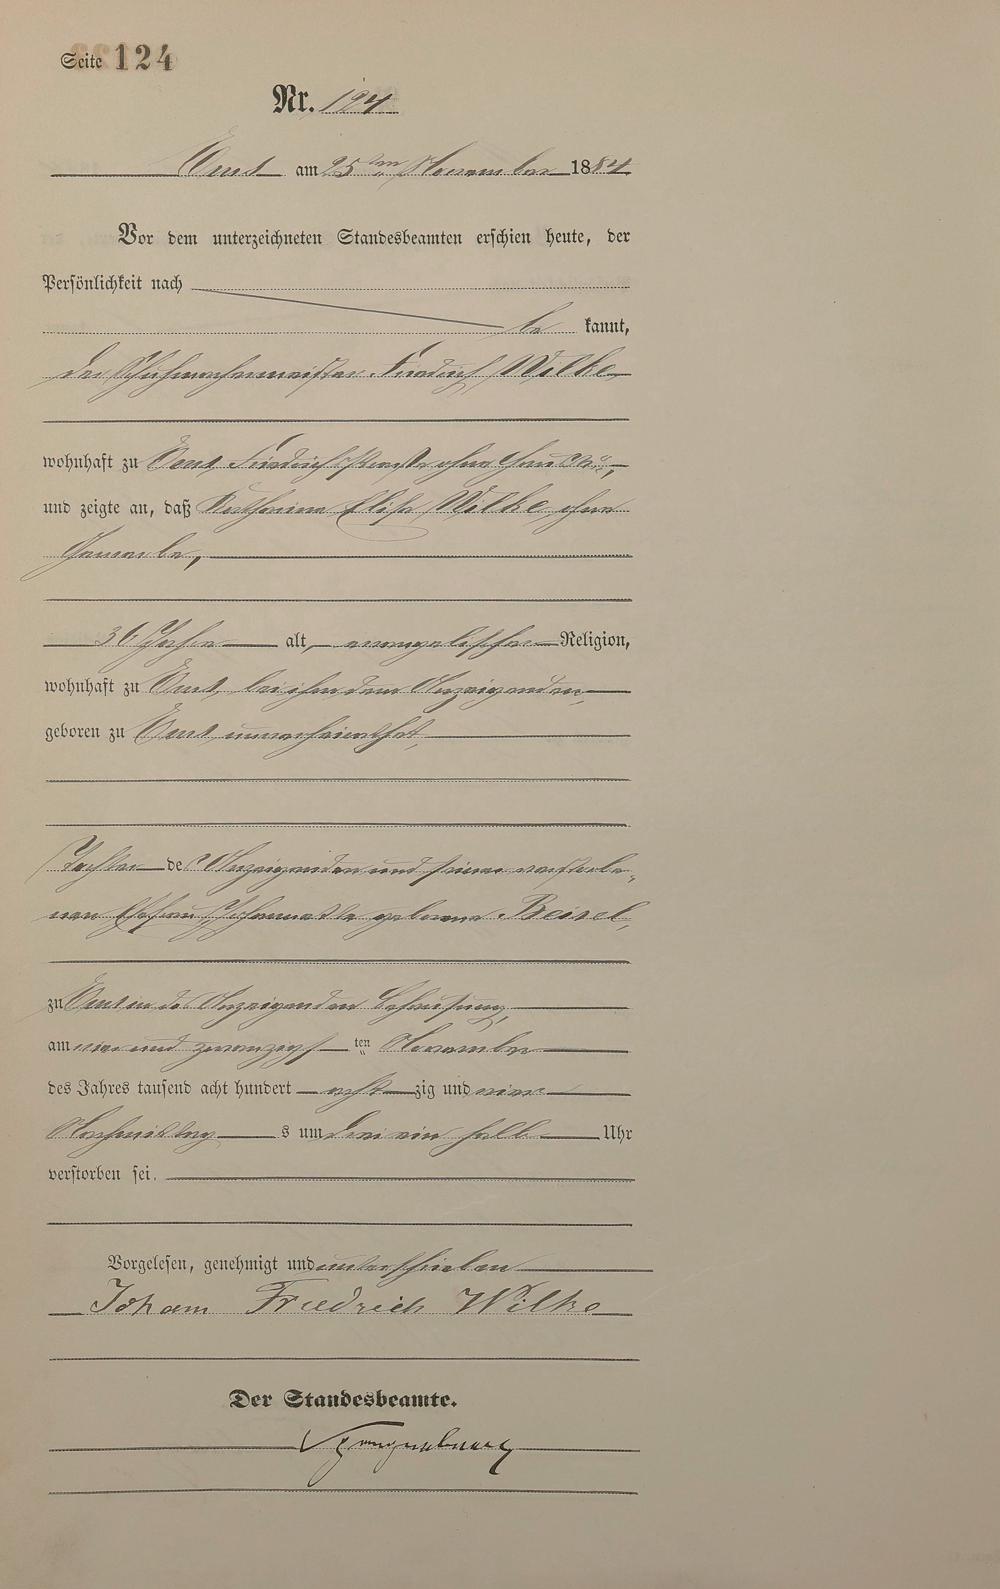 Seite 124
Nr. 124
Ems am 25ten November 1884
Vor dem unterzeichneten Standesbeamten erschien heute, der
Persönlichkeit nach
be kannt,
der Schuhmachermeister Friedrich Wilke
wohnhaft zu Ems, Friedrichstraße ohne Haus No,
und zeigte an, daß Katharina Elise Wilke, ohne
Gewerbe,
36 Jahre alt, evangelischer Religion,
wohnhaft zu Ems, bei ihm dem Anzeigenden,
geboren zu Ems, unverheirathet,
Tochter des Anzeigenden und seiner verstorbe-
nen Ehefrau Johannette geborene Beisel,
zu Ems in des Anzeigenden Behausung,
am vier und zwanzigsten November
des Jahres tausend acht hundert acht zig und vier
Nachmittag s um drei ein halb Uhr
verstorben sei.
Vorgelesen, genehmigt und unterschrieben
Johann Friedrich Wilke
Der Standesbeamte.